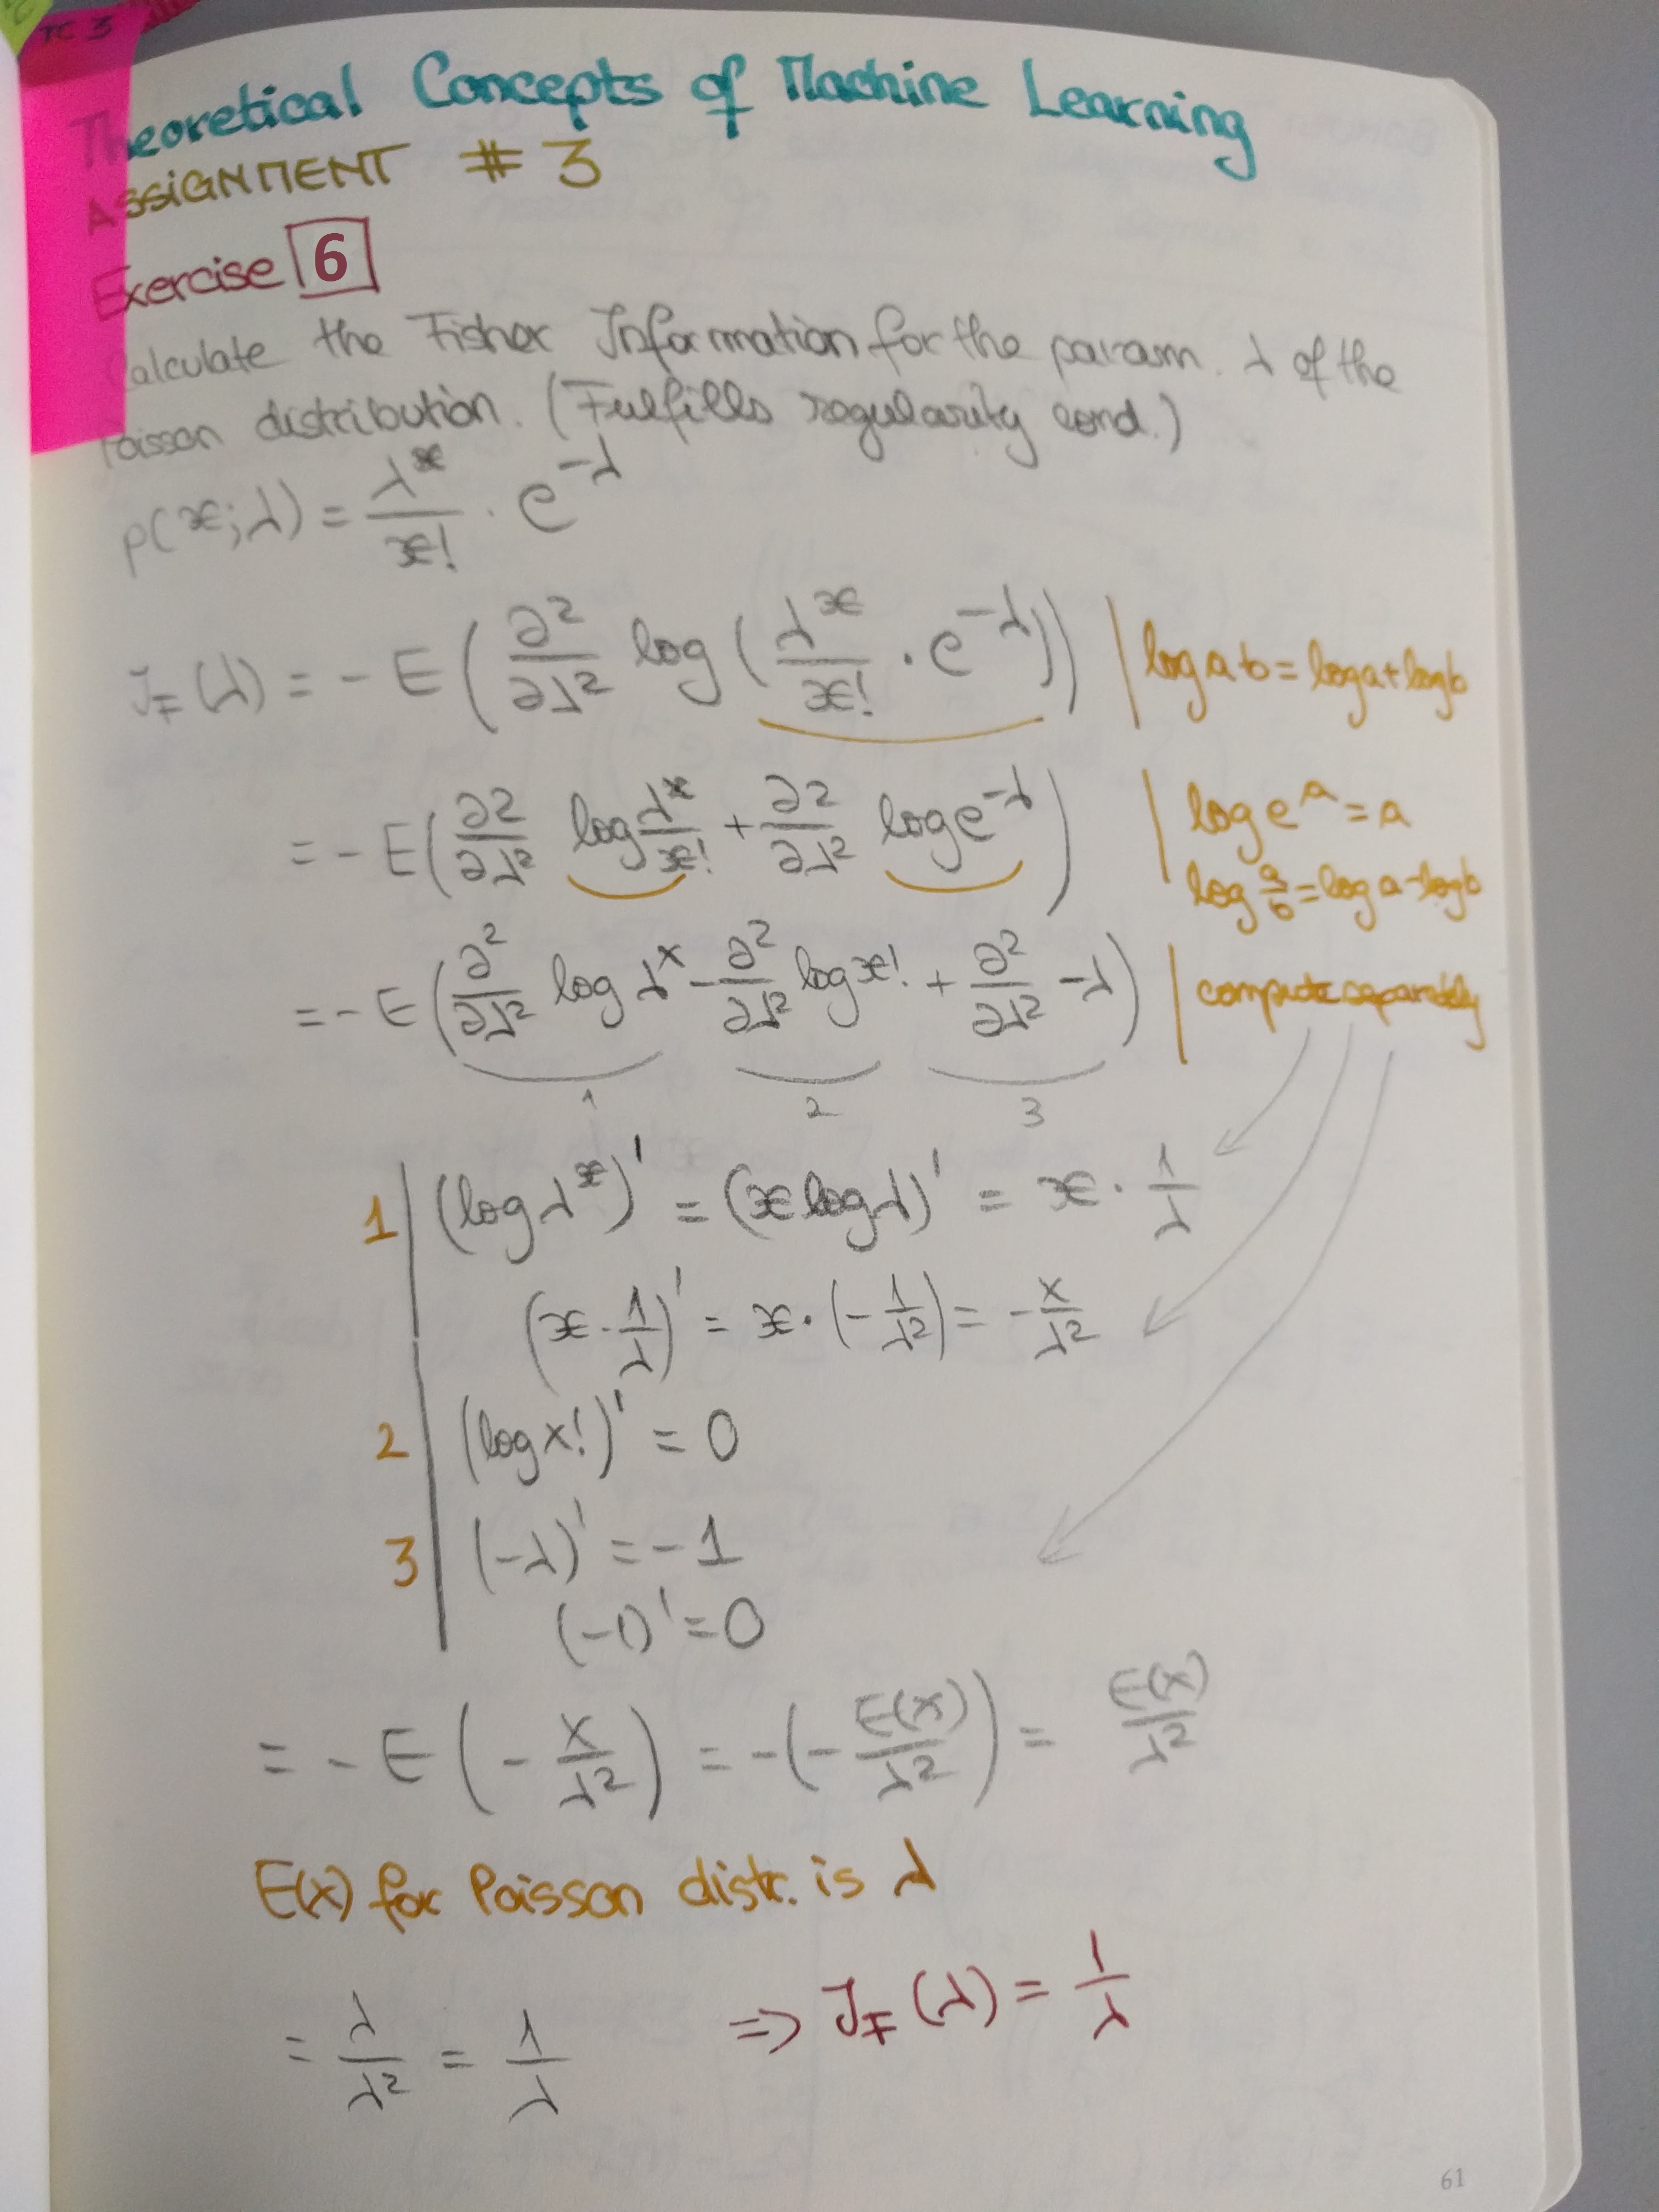 TC 3
Theoretical Concepts of Machine Learning
ASSIGNMENT # 3
Exercise 6
Calculate the Fisher Information for the param. λ of the
Poisson distribution. (Fulfills regularity cond.)
p(x;λ) = λ^x/x! · e^-λ
I_F(λ) = - E(∂²/∂λ² log(λ^x/x! · e^-λ)) | log ab = log a + log b
= - E(∂²/∂λ² log λ^x/x! + ∂²/∂λ² log e^-λ) | log e^a = a
log a/b = log a - log b
= - E(∂²/∂λ² log λ^x - ∂²/∂λ² log x! + ∂²/∂λ² -λ) | compute separately
1 2 3
1 | (log λ^x)' = (x log λ)' = x · 1/λ
(x · 1/λ)' = x · (-1/λ²) = -x/λ²
2 | (log x!)' = 0
3 | (-λ)' = -1
(-1)' = 0
= - E(-x/λ²) = -(-E(x)/λ²) = E(x)/λ²
E(x) for Poisson distr. is λ
= λ/λ² = 1/λ ⇒ I_F(λ) = 1/λ
61